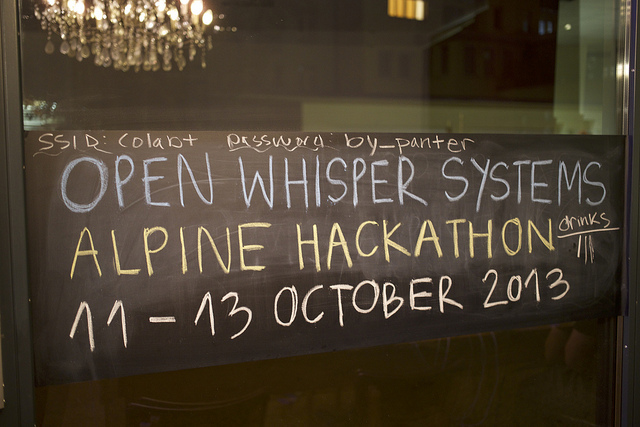 SSID: Colab+ password: by_panter
OPEN WHISPER SYSTEMS
ALPINE HACKATHON
drinks
11 - 13 OCTOBER 2013